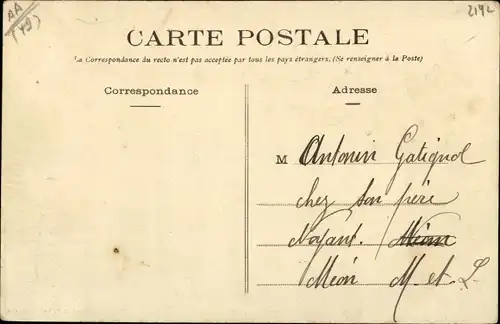 AA
(49)
2192
CARTE POSTALE
La Correspondance du recto n'est pas acceptée par tous les pays étrangers. (Se renseigner à la Poste)
Correspondance
Adresse
M Antonin Gatignol
chez son père
Noyant. Méon
Méon M. et L.